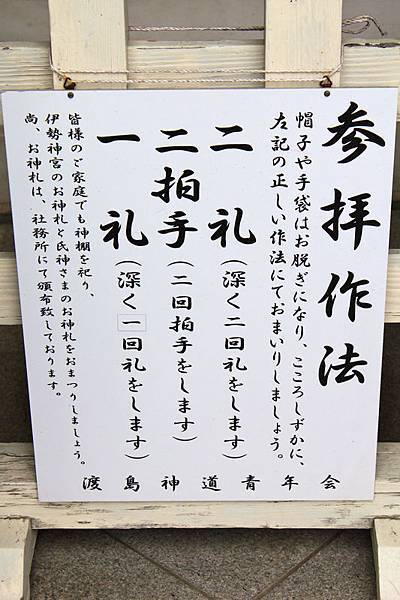 参拝作法
帽子や手袋はお脱ぎになり、こころしずかに、
左記の正しい作法にておまいりしましょう。
二礼(深く二回礼をします)
二拍手(二回拍手をします)
一礼(深く一回礼をします)
皆様のご家庭でも神棚を祀り、
伊勢神宮のお神札と氏神さまのお神札をおまつりしましょう。
尚、お神札は、社務所にて頒布致しております。
渡島神道青年会